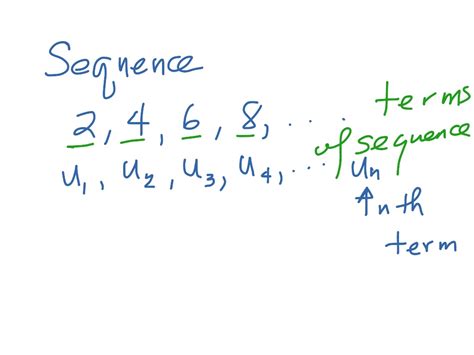 Sequence
2, 4, 6, 8, . . . terms
of sequence
u1, u2, u3, u4, ... un
↑ nth
term